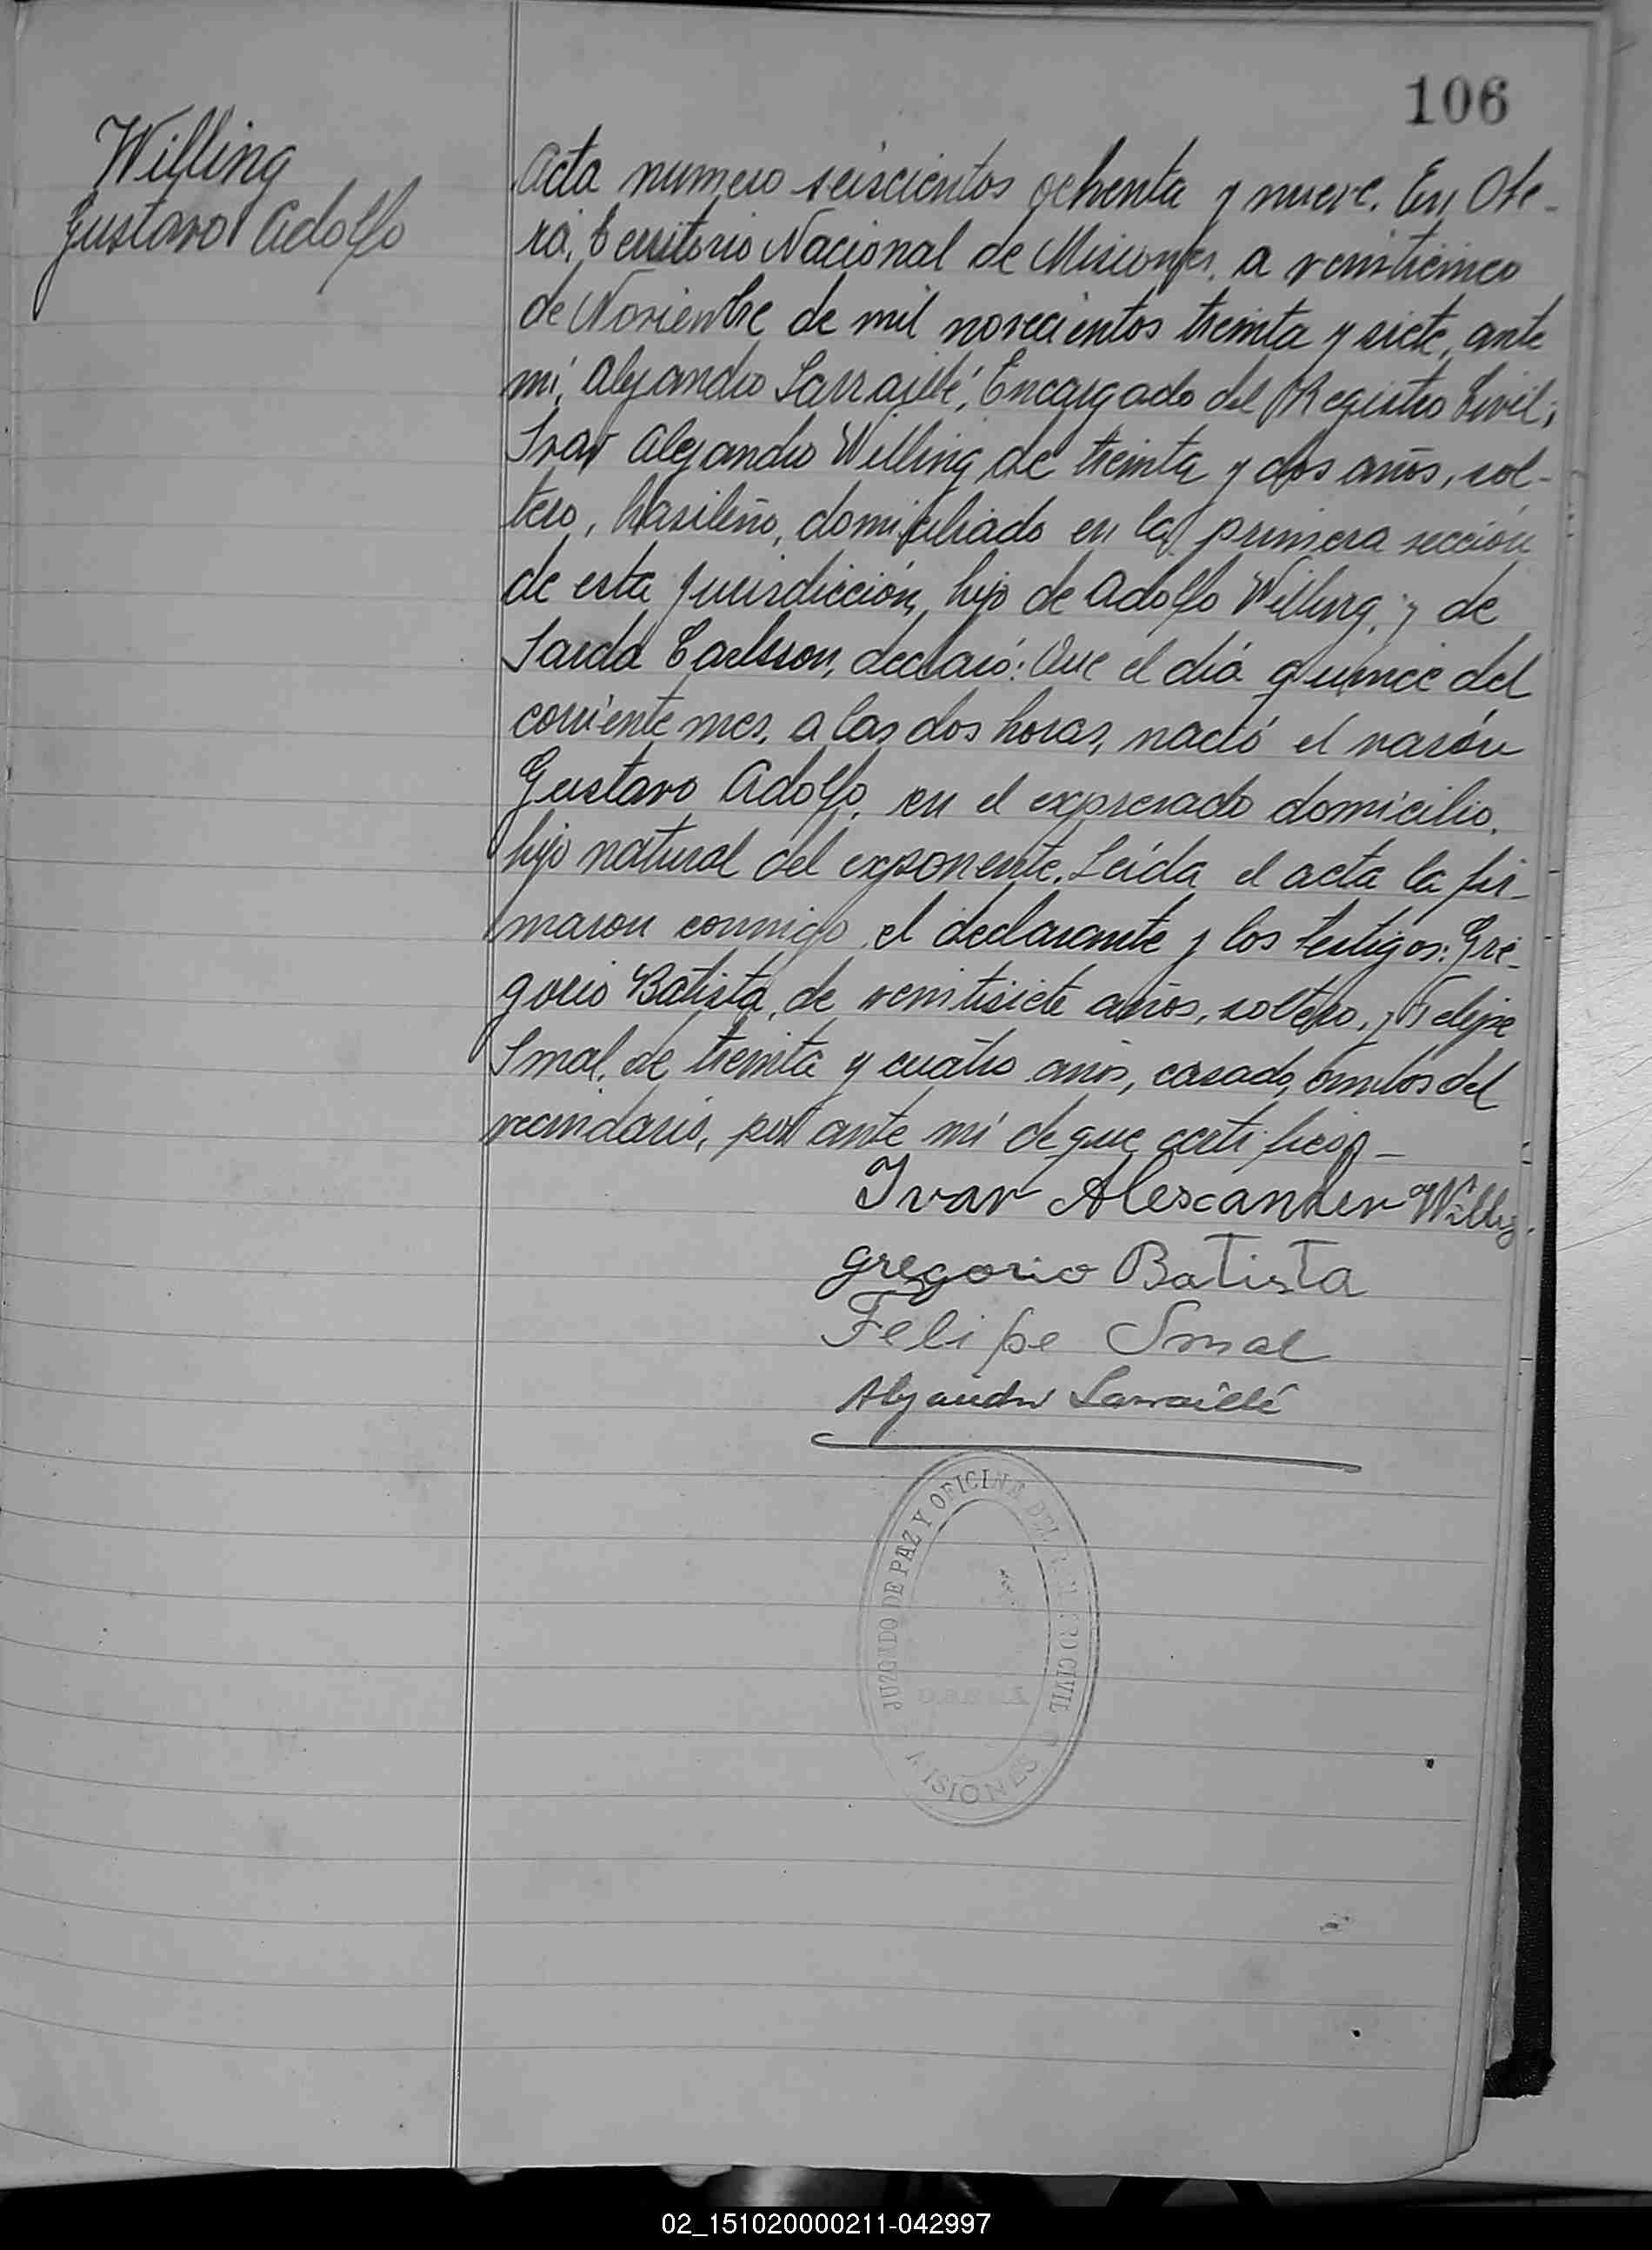 106
Willing
Gustavo Adolfo
Acta numero seiscientos ochenta y nueve. En Obe-
rá, Territorio Nacional de Misiones, a veinticinco
de Noviembre de mil novecientos treinta y siete, ante
mí, Alejandro Larraillé, Encargado del Registro Civil,
Ivar Alejandro Willing, de treinta y dos años, sol-
tero, brasileño, domiciliado en la primera sección
de esta jurisdicción, hijo de Adolfo Willing, y de
Carlsson, declaró: Que el día quince del
corriente mes, a las dos horas, nació el varón
Gustavo Adolfo, en el expresado domicilio,
hijo natural del exponente. Leída el acta la fir-
maron conmigo, el declarante y los testigos: Gre-
gorio Batista, de veintisiete años, soltero, y Felipe
Smal, de treinta y cuatro años, casado, ambos del
vecindario, por ante mí de que certifico.-
Ivar Alexcander Willing
gregorio Batista
Felipe Smal
Alejandro Larraillé
JUZGADO DE PAZ Y OFICINA DEL REGISTRO CIVIL
MISIONES
02_151020000211-042997